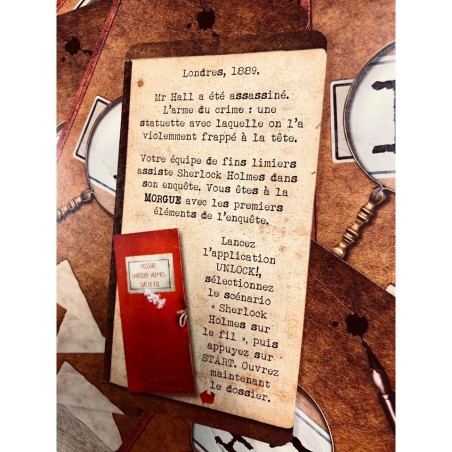 Londres, 1889.
Mr Hall a été assassiné.
L'arme du crime : une
statuette avec laquelle on l'a
violemment frappé à la tête.
Votre équipe de fins limiers
assiste Sherlock Holmes dans
son enquête. Vous êtes à la
MORGUE avec les premiers
éléments de l'enquête.
Lancez
l'application
UNLOCK!,
sélectionnez
le scénario
« Sherlock
Holmes sur
le fil », puis
appuyez sur
START. Ouvrez
maintenant
le dossier.
DOSSIER
SHERLOCK HOLMES
SUR LE FIL